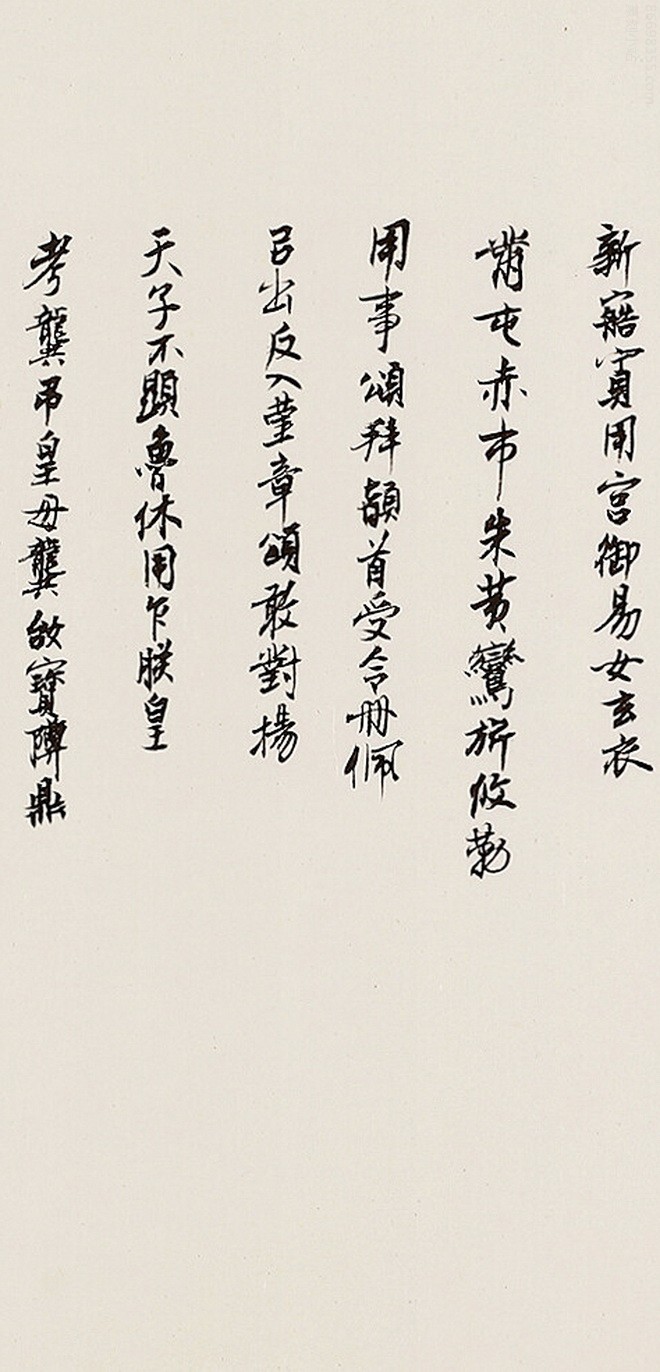 新寤賓用宮御易女玄衣
黹屯赤巿朱黄鸞旂攸勒
用事頌拜䭫首受令册佩
㠯出反入堇章頌敢對揚
天子不顯魯休用乍朕皇
考龔弔皇母龔㚸寶䵼鼎